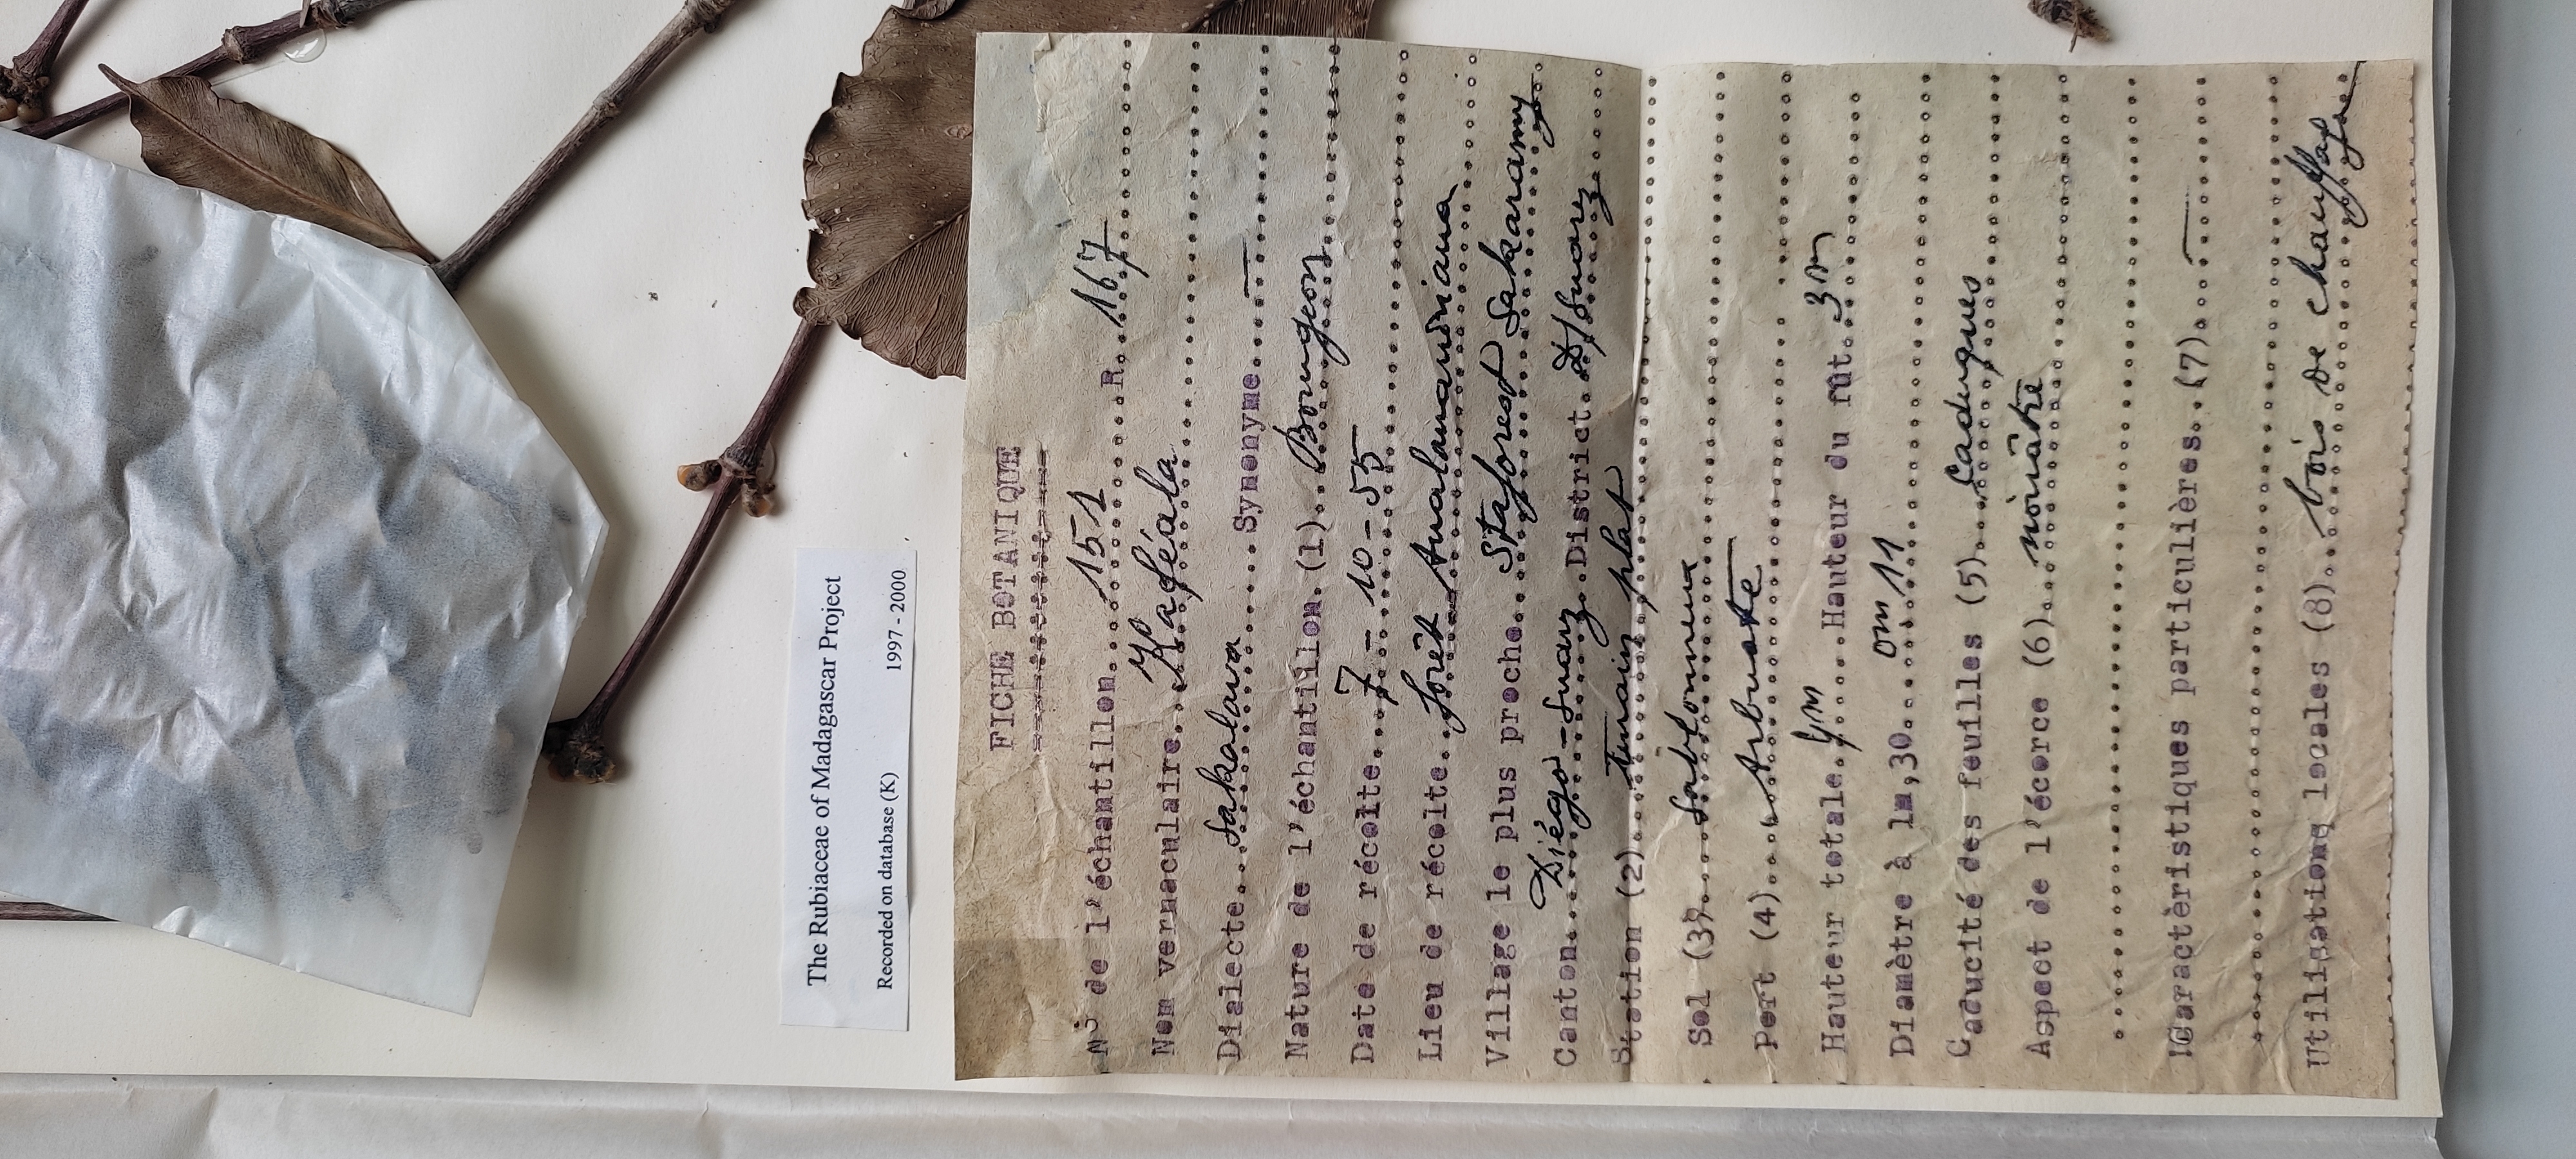 The Rubiaceae of Madagascar Project
Recorded on database (K) 1997 - 2000
FICHE BOTANIQUE
N° de l'échantillon....151......R..167
Nom vernaculaire...Kaféala
Dialecte...Sakalava.......Synonyme..—
Nature de l'échantillon.(1)..Bourgeon
Date de récolte....7 - 10 - 55
Lieu de récolte..forêt Analamariniana
Village le plus proche...Staforest Sakaramy
Canton...Diégo-Suarez..District..D/Suarez
Station (2)....terrain plat
Sol (3)....Sablonneux
Port (4)....Arbuste
Hauteur totale. .....Hauteur du fût..3m
Diamètre à 1m,30....0m11
Caducité des feuilles (5)...Caduques
Aspect de l'écorce (6)..noirâtre
Caractèristiques particulières...(7)....—
Utilisations locales (8)...bois de chauffage